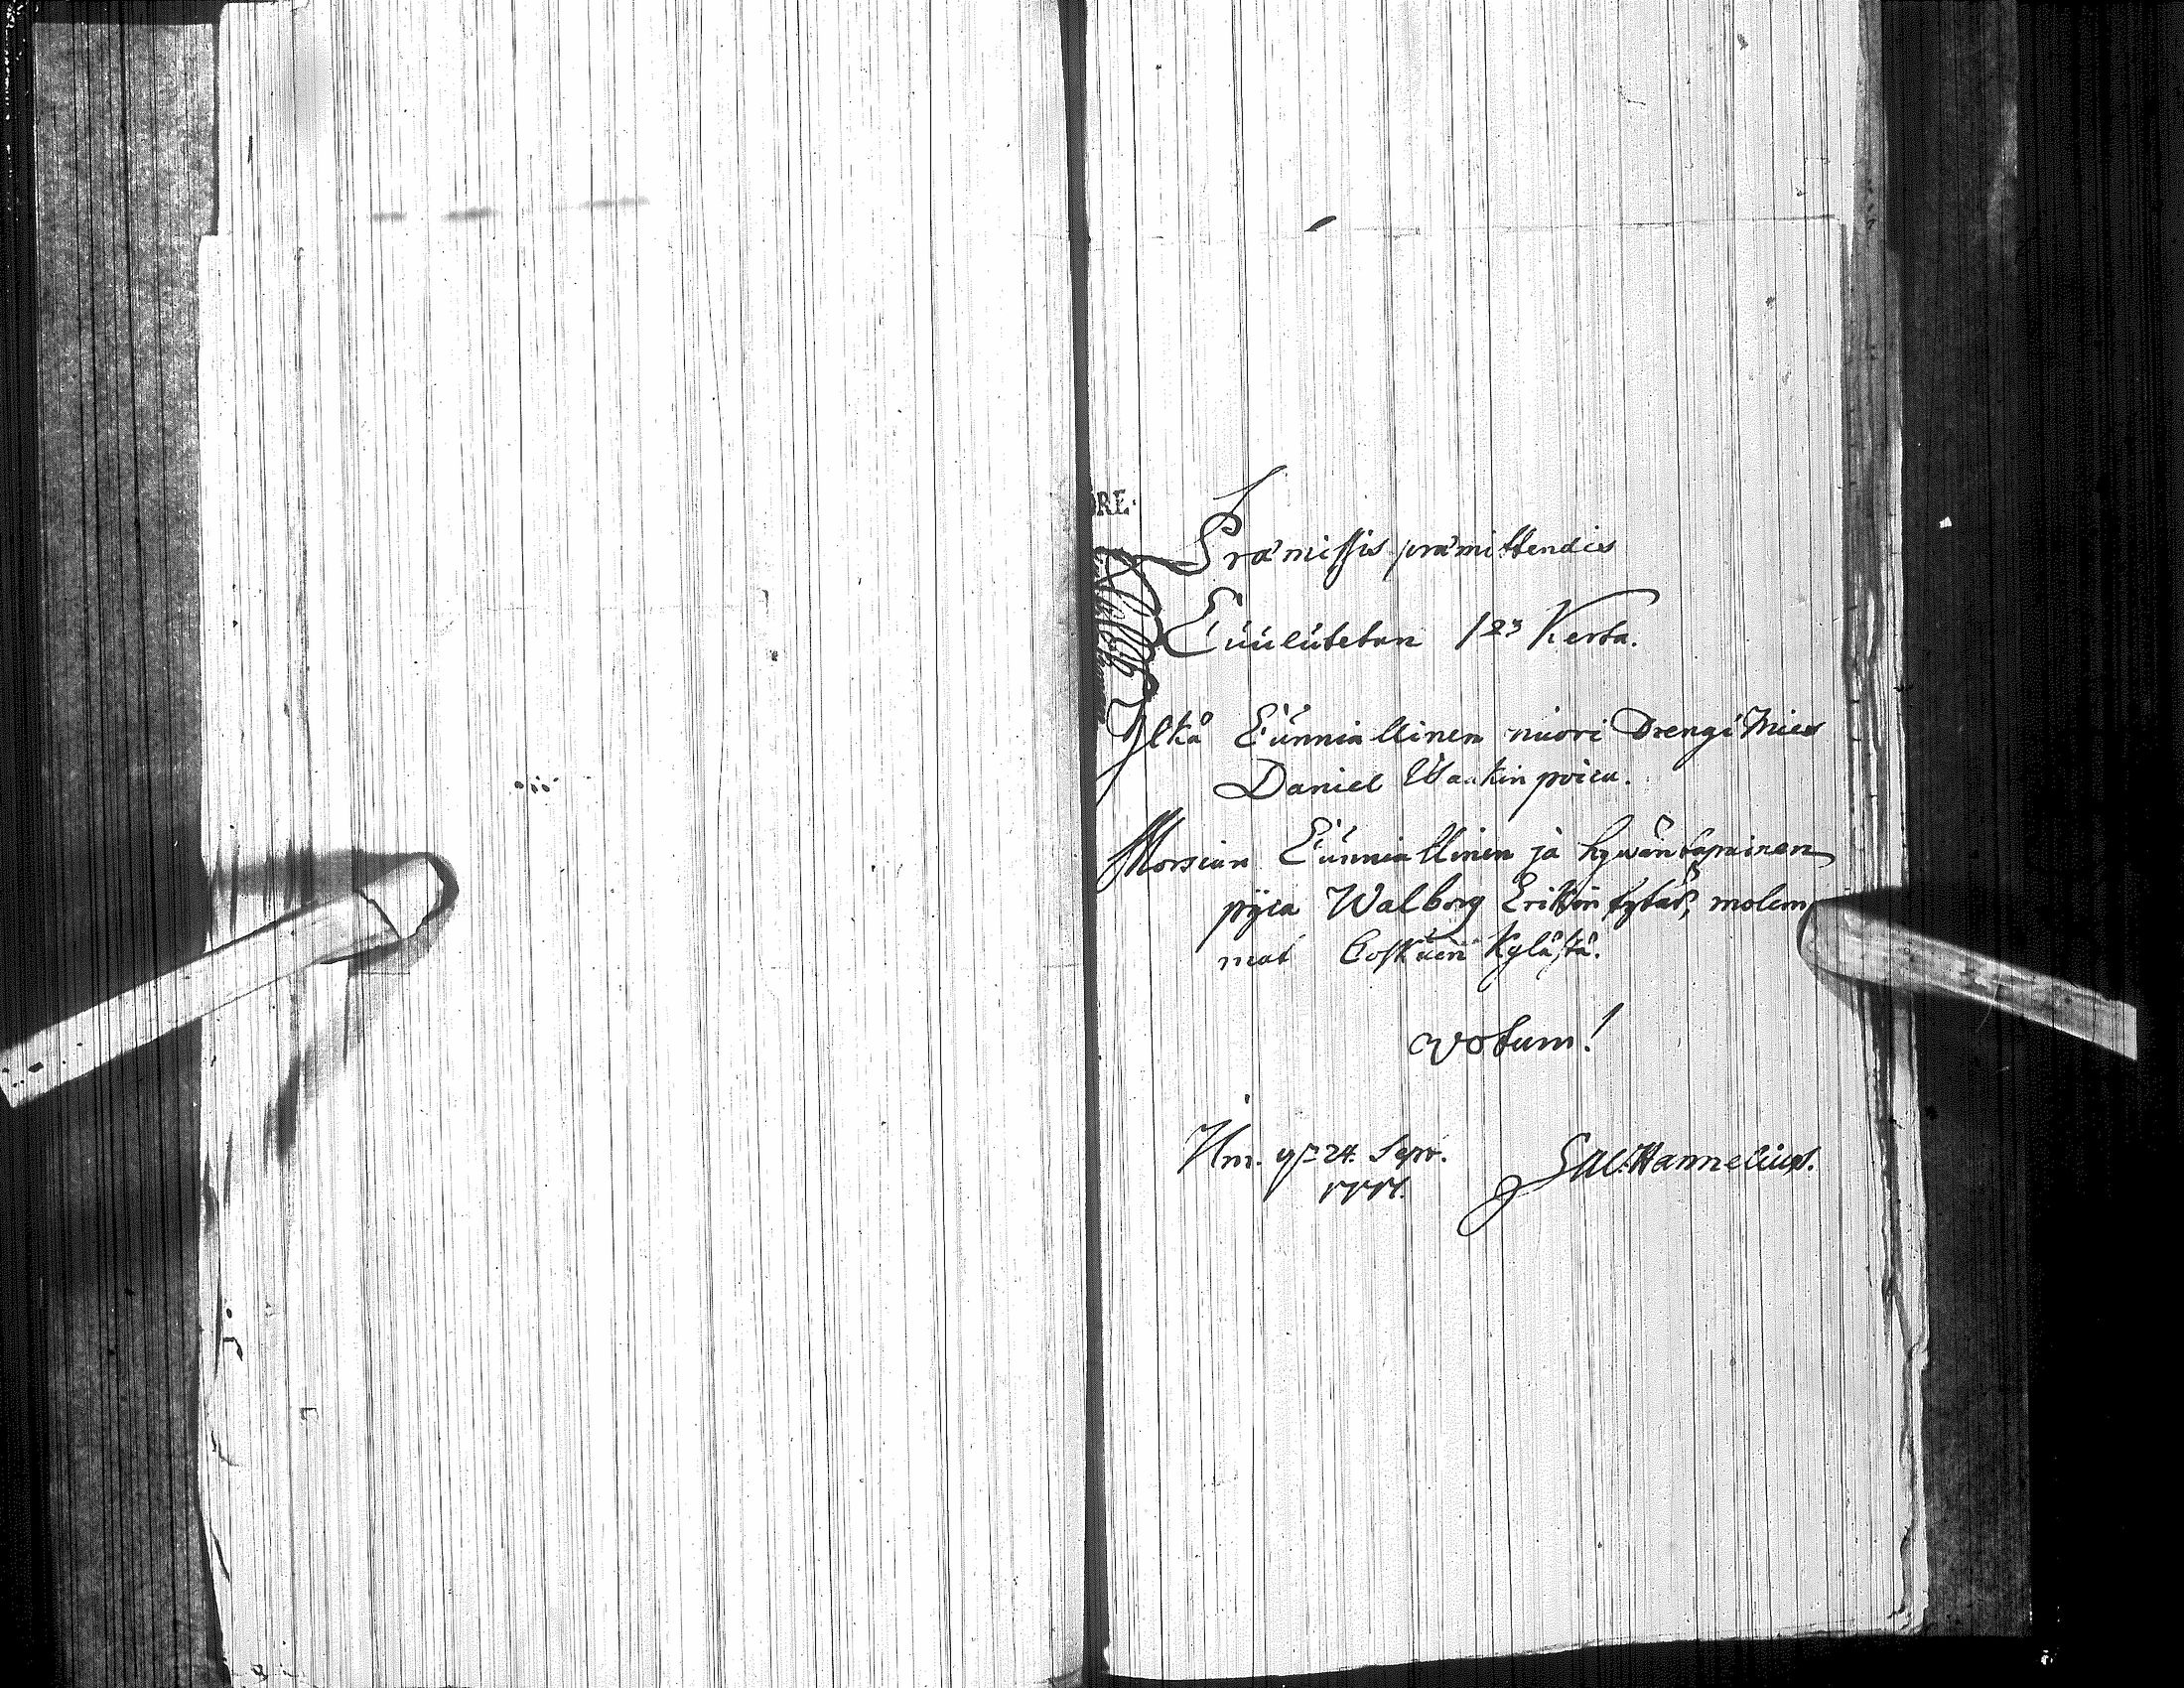 ORE.
Præmissis præmittendis
Cuulutetan 1 2 3 Kerta.
Ylkå Cunniallinen nuori Drengi Mies
Daniel poica.
Morsian Cunniallinen ja hywäntapainen
pijca Walborg Erikin tytär, molem
mat Coskuen Kylästä.
votum!
24. Sept.
Hannelius.